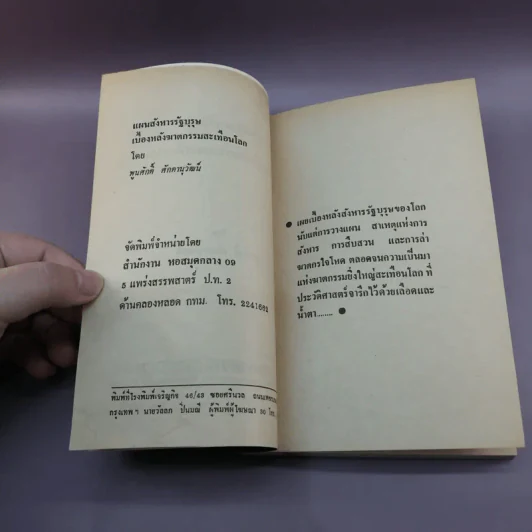 แผนสังหารรัฐบุรุษ
เบื้องหลังฆาตกรรมสะเทือนโลก
โดย
พูนศักดิ์ ศักดานุวัฒน์
จัดพิมพ์จำหน่ายโดย
สำนักงาน หอสมุดกลาง ๐๙
5 แพร่งสรรพสาตร์ ป.ท. 2
ด้านคลองหลอด กทม. โทร.
พิมพ์ที่โรงพิมพ์เจริญกิจ 46/43 ซอยศรีนวล
กรุงเทพฯ นายวัลลภ ปิ่นมณี ผู้พิมพ์ผู้โฆษณา
● เผยเบื้องหลังสังหารรัฐบุรุษของโลก
นับแต่การวางแผน สาเหตุแห่งการ
สังหาร การสืบสวน และการล่า
ฆาตกรใจโหด ตลอดจนความเป็นมา
แห่งฆาตกรรมยิ่งใหญ่สะเทือนโลก ที่
ประวัติศาสตร์จารึกไว้ด้วยเลือดและ
น้ำตา....... ●